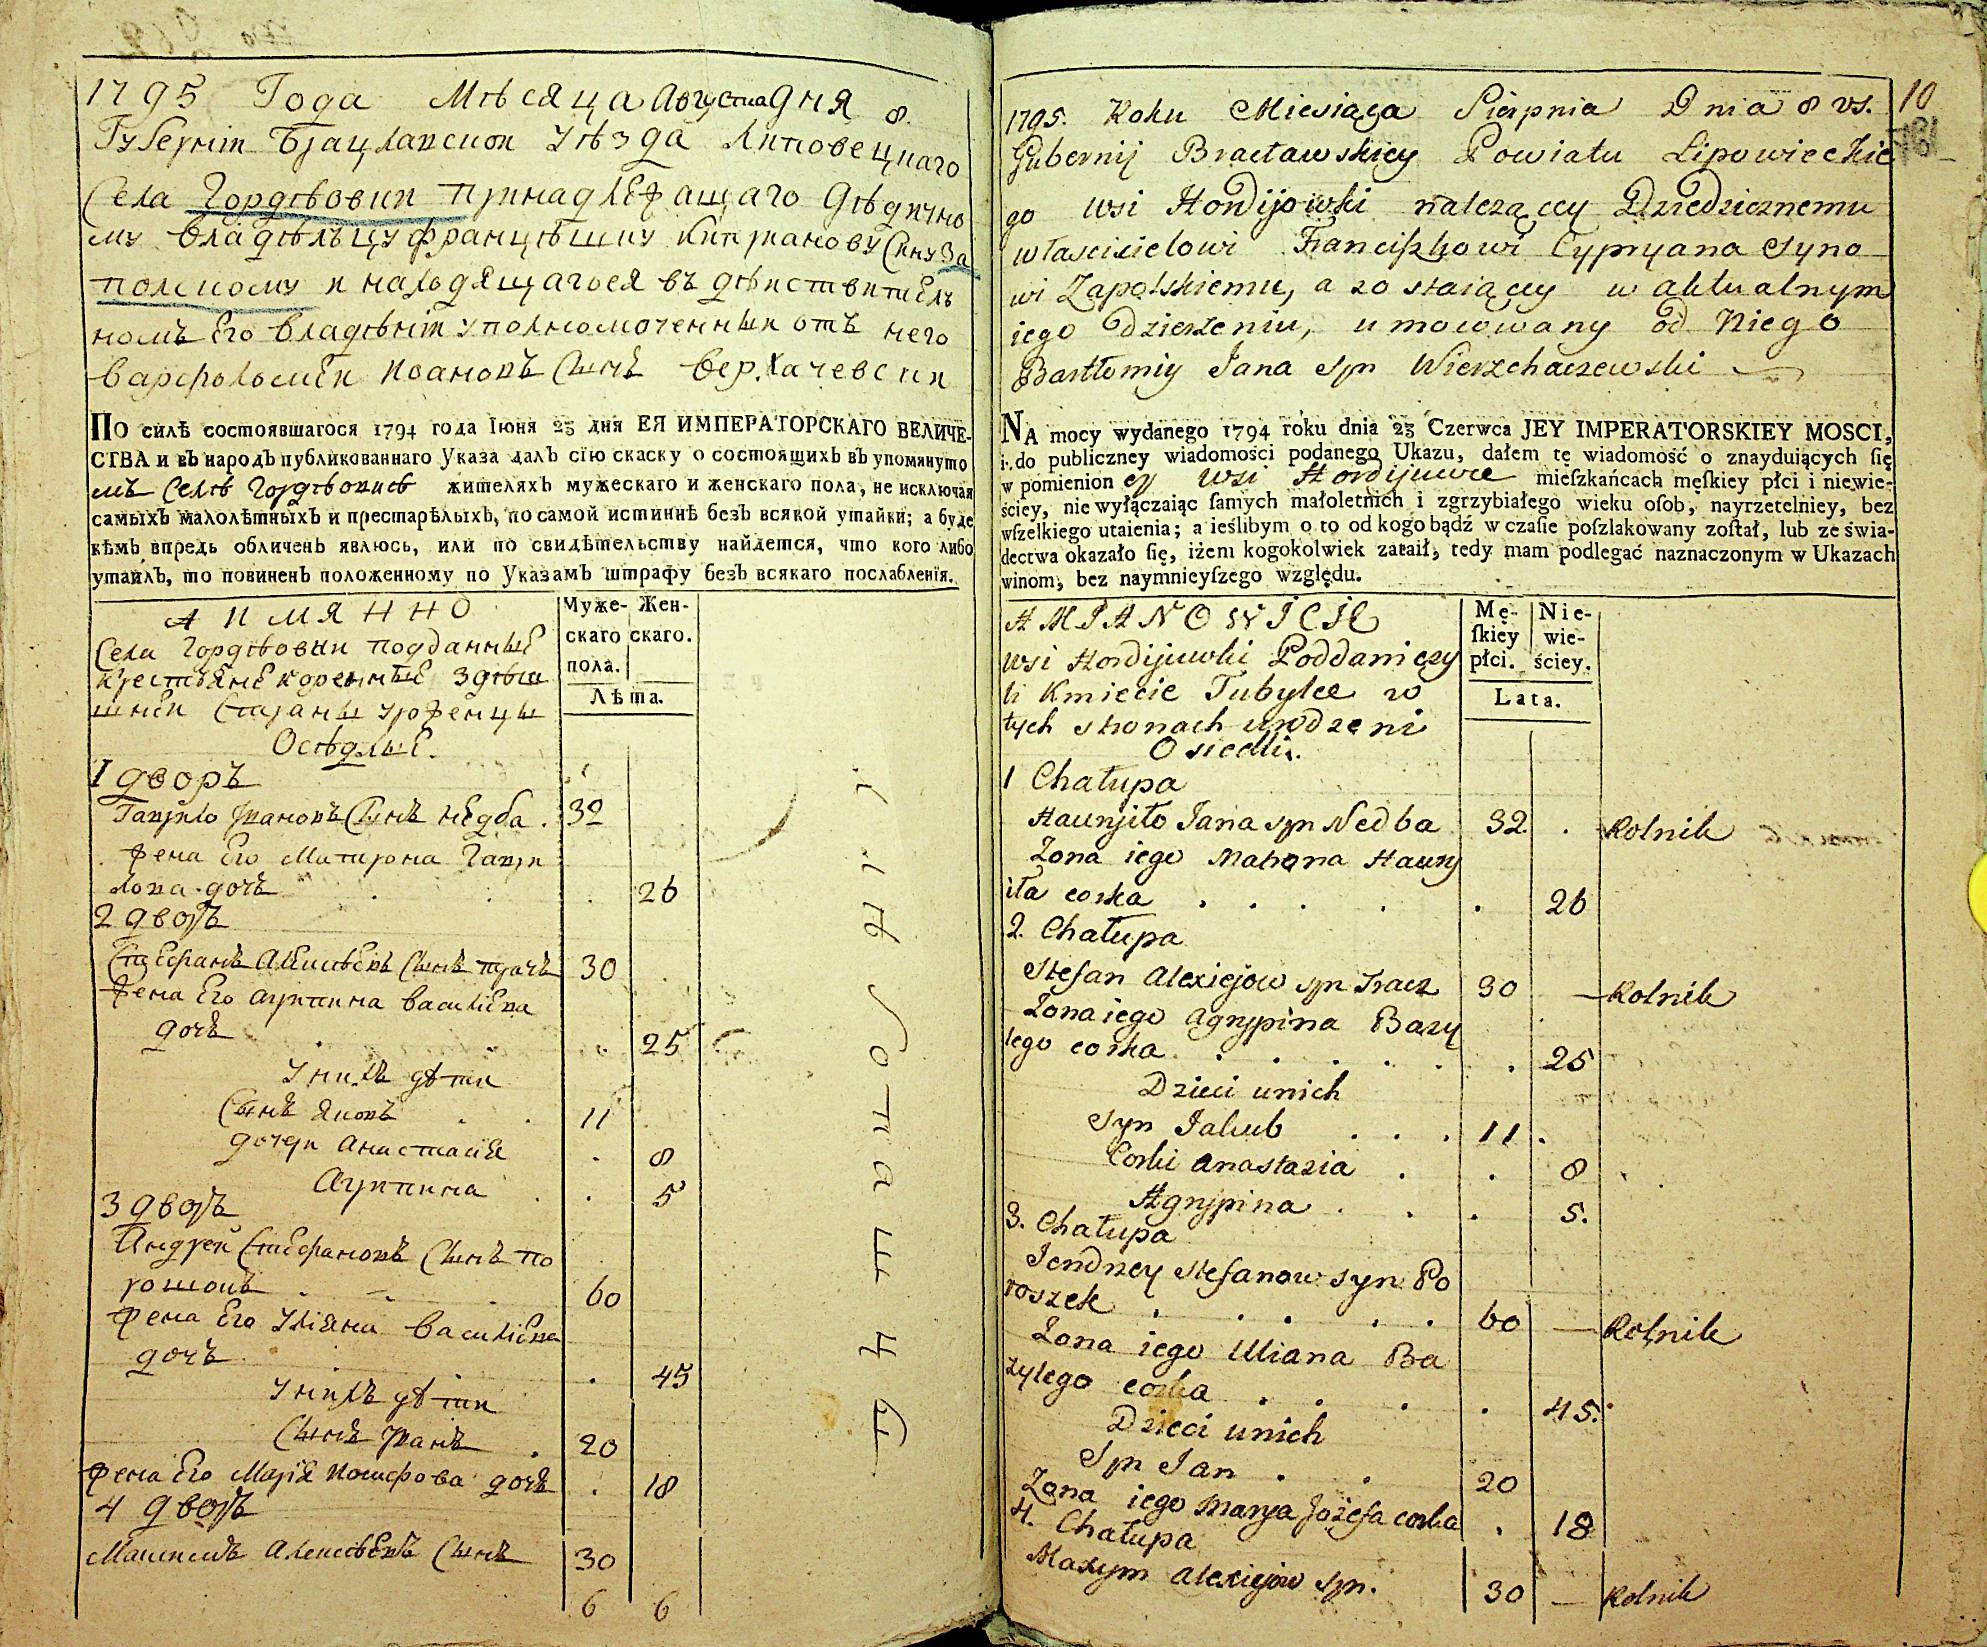 1795 Года Мѣсяца Августа дня 8.
Губерніи Брацлавской Уѣзда Липовецкаго
Села Гордѣовки принадлежащаго дѣдично
му владѣльцу францѣшку Киприанову Сыну За
польскому и находящагося въ дѣиствитель
номъ Его владѣніи уполномоченный отъ него
варфоломей Ивановъ Сынъ верхачевски
ПО силѣ состоявшагося 1794 года Іюня 23 дня ЕЯ ИМПЕРАТОРСКАГО ВЕЛИЧЕ-
СТВА и въ народъ публикованнаго Указа далъ сію скаску о состоящихъ въ упомянуто
мъ Селѣ Гордѣовкѣ жителяхъ мужескаго и женскаго пола, не исключая
самыхъ малолѣтныхъ и престарѣлыхъ, по самой истиннѣ безъ всякой утайки; а буде
кѣмъ впредь обличенъ явлюсь, или по свидѣтельству найдется, что кого либо
утаилъ, то повиненъ положенному по Указамъ штрафу безъ всякаго послабленія.
А И М Я Н Н О
Муже- Жен-
скаго скаго.
пола.
Лѣта.
Села Гордѣовки подданные
крестьяне коренные здѣш
шней Стараны уроженцы
Осѣдлые.
1 дворъ
Гаврило Ивановъ Сынъ недба . 32
жена Его Матрона Гаври
лова дочь 26
2 дворъ
Стефанъ Алексѣевъ Сынъ ткачъ 30
жена Его агрипина василiева
дочъ 25
У нихъ дѣти
Сынъ Яковъ 11
дочери анастасия 8
Агрипина 5
3 дворъ
Андрей Стефановъ Сынъ по
рошокъ 60
жена Его Улiяна василiева
дочъ 45
У нихъ дѣти
Сынъ Иванъ 20
жена Его Марiя иосифова дочъ 18
4 дворъ
Максимъ алексѣевъ Сынъ 30
6 6
1795. Roku Miesiąca Sierpnia Dnia 8 vs. 10
Gubernij Bracławskiey Powiatu Lipowieckie
go wsi Hordijowki nalezący Dziedzicznemu
własciścielowi Franciszkowi Cypryana Syno
wi Zapolskiemu, a zostaiący w aktualnym
iego dzierzeniu, umocowany od niego
Bartłomiy Jana syn Wierzchaczewski
NA mocy wydanego 1794 roku dnia 23 Czerwca JEY IMPERATORSKIEY MOSCI,
i do publiczney wiadomości podanego Ukazu, dałem tę wiadomość o znayduiących ſię
w pomienion ey wsi Hordijuwce mieſzkańcach męſkiey płci i niewie-
ściey, nie wyłączaiąc ſamych małoletnich i zgrzybiałego wieku oſob, nayrzetelniey, bez
wſzelkiego utaienia; a ieślibym o to od kogo bądź w czaſie poſzlakowany zoſtał, lub ze świa-
dectwa okazało ſię, iżem kogokolwiek zataił, tedy mam podlegać naznaczonym w Ukazach
winom, bez naymnieyſzego względu.
A M I A N O W I C I E
Mę- Nie-
ſkiey wie-
płci. ściey.
Lata.
wsi Hordijuwki Poddani czy
li Kmiecie Tubylce w
tych stronach urodzeni
Osiedli.
1 Chałupa
Hawryło Jana syn Nedba 32. . Rolnik
Zona iego Matrona Hawry
iła corka . . . . . 26
2. Chałupa
Stefan Alexiejow syn Tracz 30 — Rolnik
Zona iego Agrypina Bazy
lego corka . . . . . 25
Dzieci u nich
Syn Jakub . . . 11 .
Corki Anastazia . . 8
Agrypina . . . 5.
3. Chałupa
Jendrzey Stefanow syn Po
roszek . . . . . 60 — Rolnik
Zona iego Uliana Ba
zylego corka . . . . 45.
Dzieci u nich
Syn Jan . . 20
Zona iego Marya Jozefa corka . 18
4. Chałupa
Maxym Alexiejow syn. 30 — Rolnik